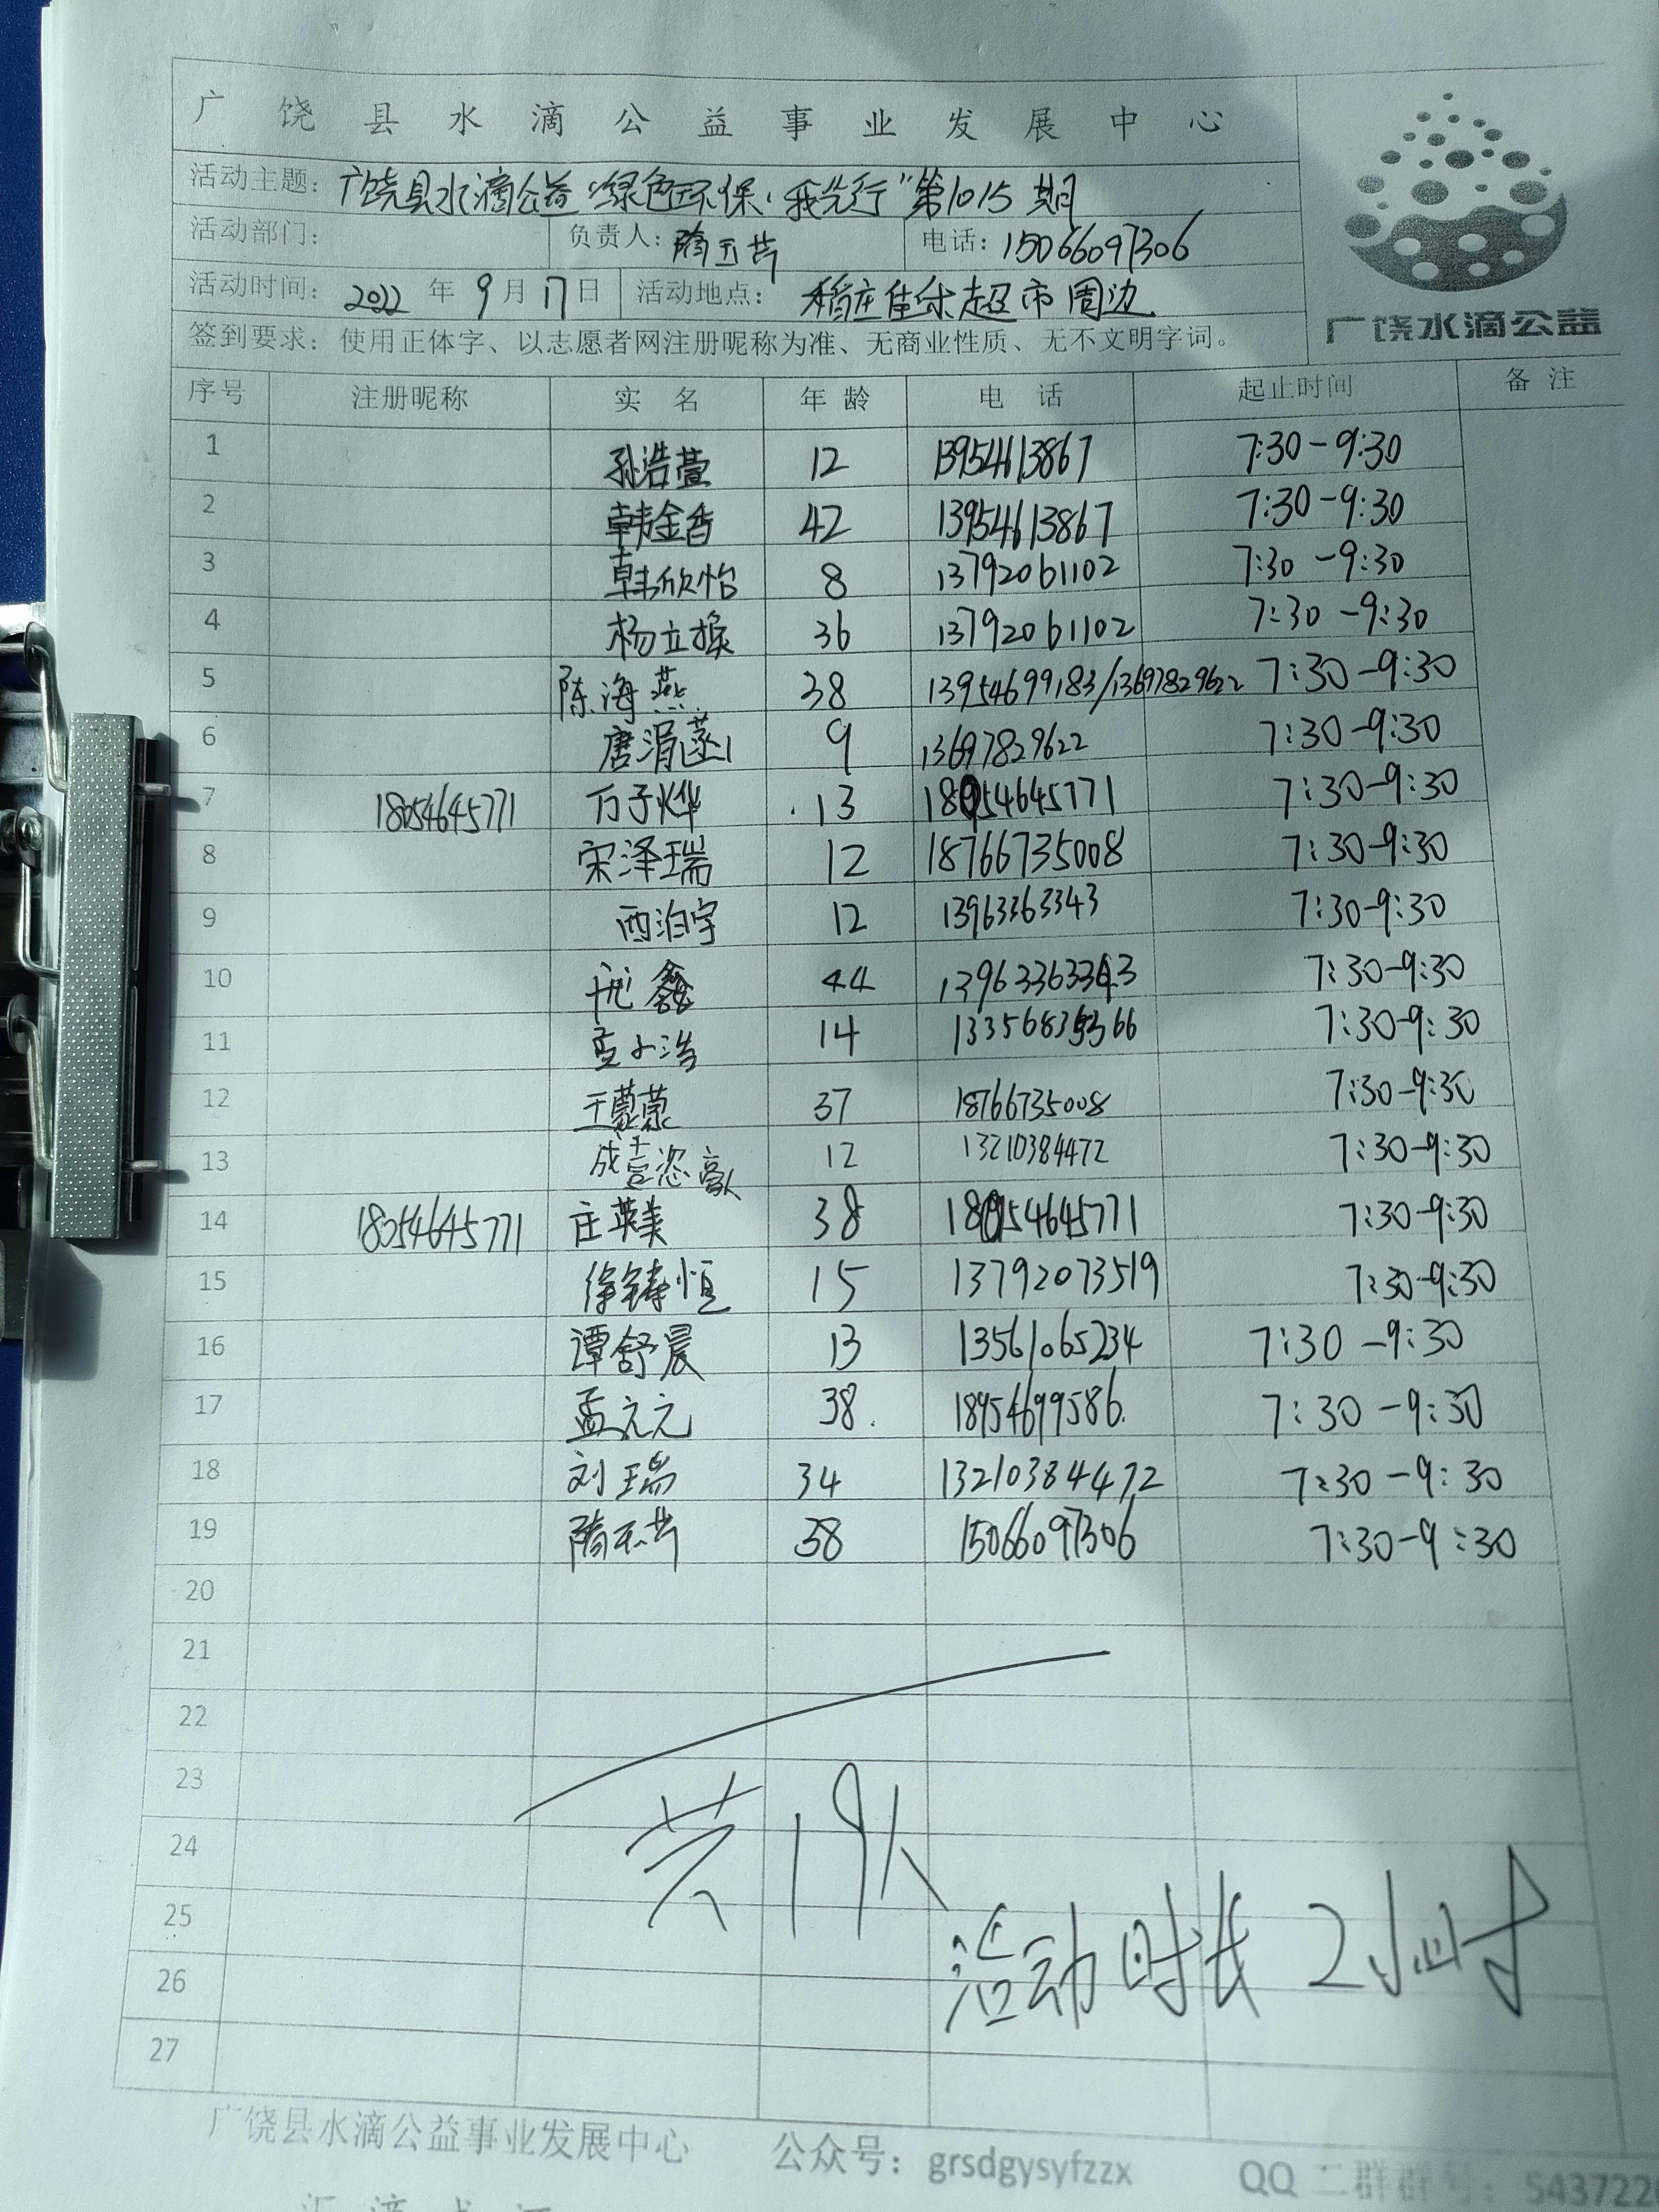 广饶县水滴公益事业发展中心
活动主题：广饶县水滴公益“绿色环保，我先行”第1015期
活动部门： 负责人： 电话：15066097306
活动时间：2022年9月17日 活动地点：稻庄佳乐超市周边
签到要求：使用正体字、以志愿者网注册昵称为准、无商业性质、无不文明字词。
广饶水滴公益
序号 注册昵称 实名 年龄 电话 起止时间 备注
1 孙浩萱 12 13954613867 7:30-9:30
2 韩金香 42 13954613867 7:30-9:30
3 韩欣怡 8 13792061102 7:30-9:30
4 杨立换 36 13792061102 7:30-9:30
5 陈海燕 38 13954699183/13697829622 7:30-9:30
6 唐涓 9 13697829622 7:30-9:30
7 18054645771 万子烨 13 18054645771 7:30-9:30
8 宋泽瑞 12 18766735008 7:30-9:30
9 西泊宇 12 13963363343 7:30-9:30
10 鑫 44 13963363343 7:30-9:30
11 14 7:30-9:30
12 王蒙蒙 37 18766735008 7:30-9:30
13 12 13210384472 7:30-9:30
14 18054645771 庄英美 38 18054645771 7:30-9:30
15 徐铸恒 15 13792073519 7:30-9:30
16 谭舒晨 13 13561065234 7:30-9:30
17 孟元元 38 18954699586 7:30-9:30
18 刘瑞 34 13210384472 7:30-9:30
19 38 15066097306 7:30-9:30
20
21
22
23
共19人
24
25
活动时长2小时
26
27
广饶县水滴公益事业发展中心 公众号：grsdgysyfzzx QQ二群群号：5437228